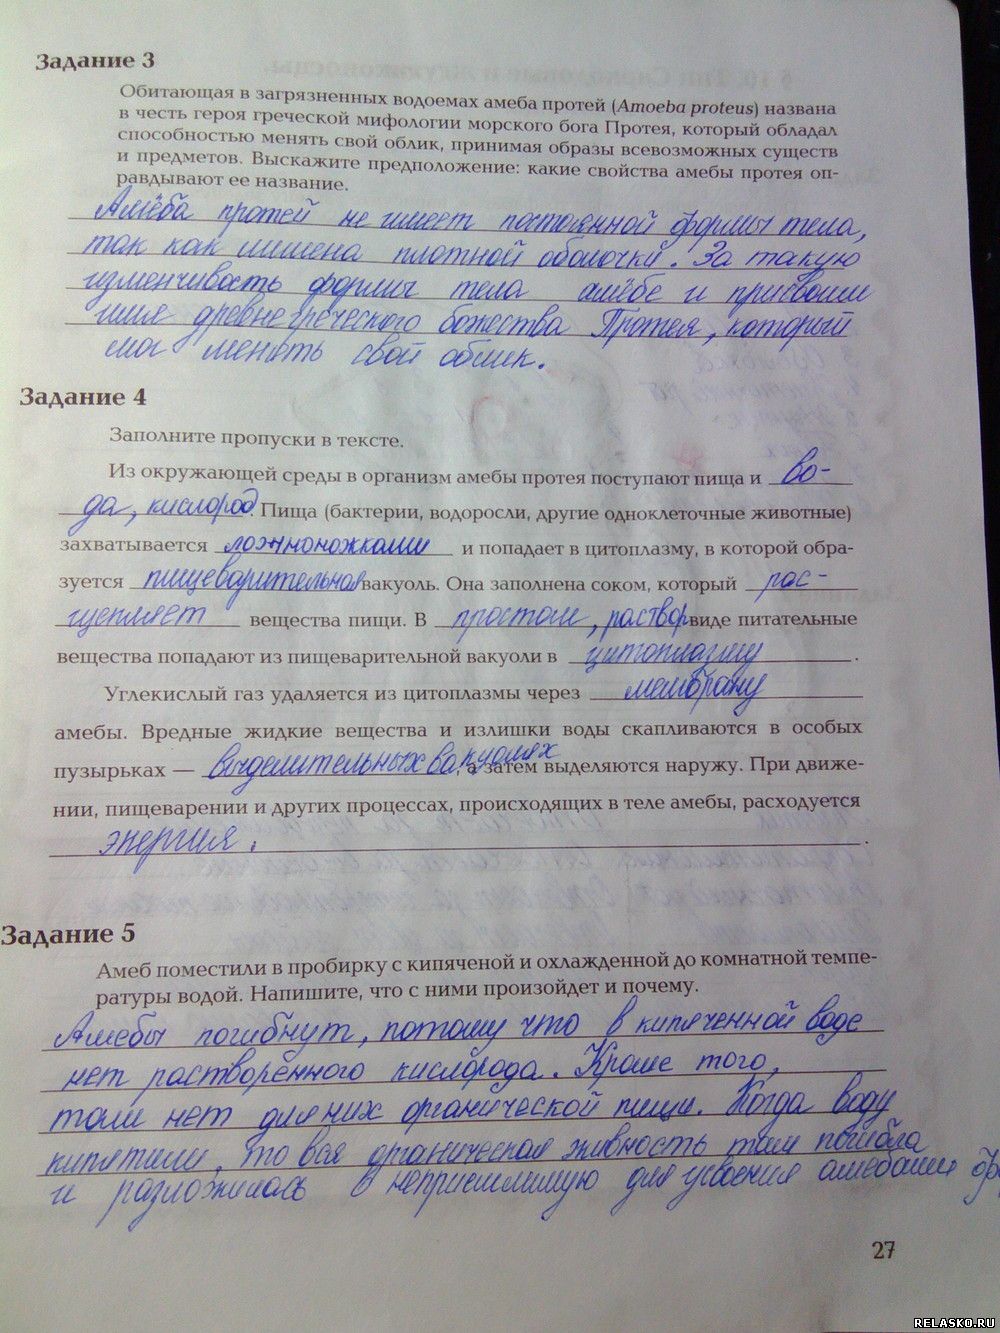 Задание 3
Обитающая в загрязненных водоемах амеба протей (Amoeba proteus) названа
в честь героя греческой мифологии морского бога Протея, который обладал
способностью менять свой облик, принимая образы всевозможных существ
и предметов. Выскажите предположение: какие свойства амебы протея оп-
равдывают ее название.
Амёба протей не имеет постоянной формы тела,
так как лишена плотной оболочки. За такую
изменчивость формы тела амёбе и присвоили
имя древнегреческого божества Протея, который
мог менять свой облик.
Задание 4
Заполните пропуски в тексте.
Из окружающей среды в организм амебы протея поступают пища и во-
да, кислород. Пища (бактерии, водоросли, другие одноклеточные животные)
захватывается ложноножками и попадает в цитоплазму, в которой обра-
зуется пищеварительная вакуоль. Она заполнена соком, который рас-
щепляет вещества пищи. В простом, раствор виде питательные
вещества попадают из пищеварительной вакуоли в цитоплазму.
Углекислый газ удаляется из цитоплазмы через мембрану
амебы. Вредные жидкие вещества и излишки воды скапливаются в особых
пузырьках — выделительных вакуолях, а затем выделяются наружу. При движе-
нии, пищеварении и других процессах, происходящих в теле амебы, расходуется
энергия.
Задание 5
Амеб поместили в пробирку с кипяченой и охлажденной до комнатной темпе-
ратуры водой. Напишите, что с ними произойдет и почему.
Амебы погибнут, потому что в кипяченной воде
нет растворённого кислорода. Кроме того,
там нет для них органической пищи. Когда воду
кипятили, то вся органическая живность там погибла
и разложилась в неприемлимую для усвоения амебами
27
RELASKO.RU